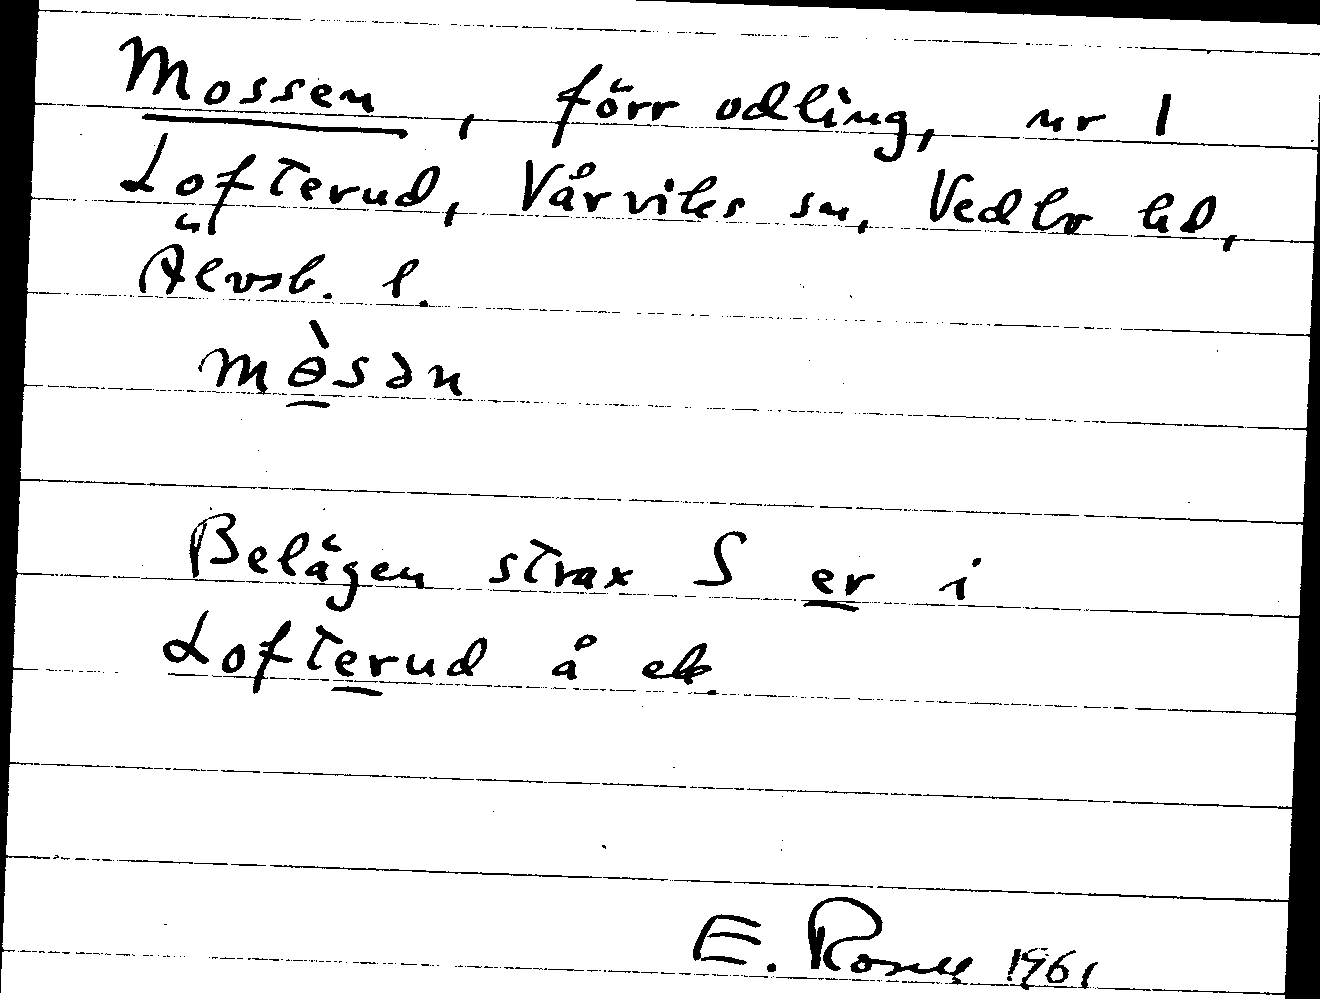 Mossen, förr odling, nr 1
Lofterud, Vårviks sn, Vedbo hd,
Älvsb. l.
mɵ̀sən
Belägen strax S er i
Lofterud å ek.
E. Rosell 1961